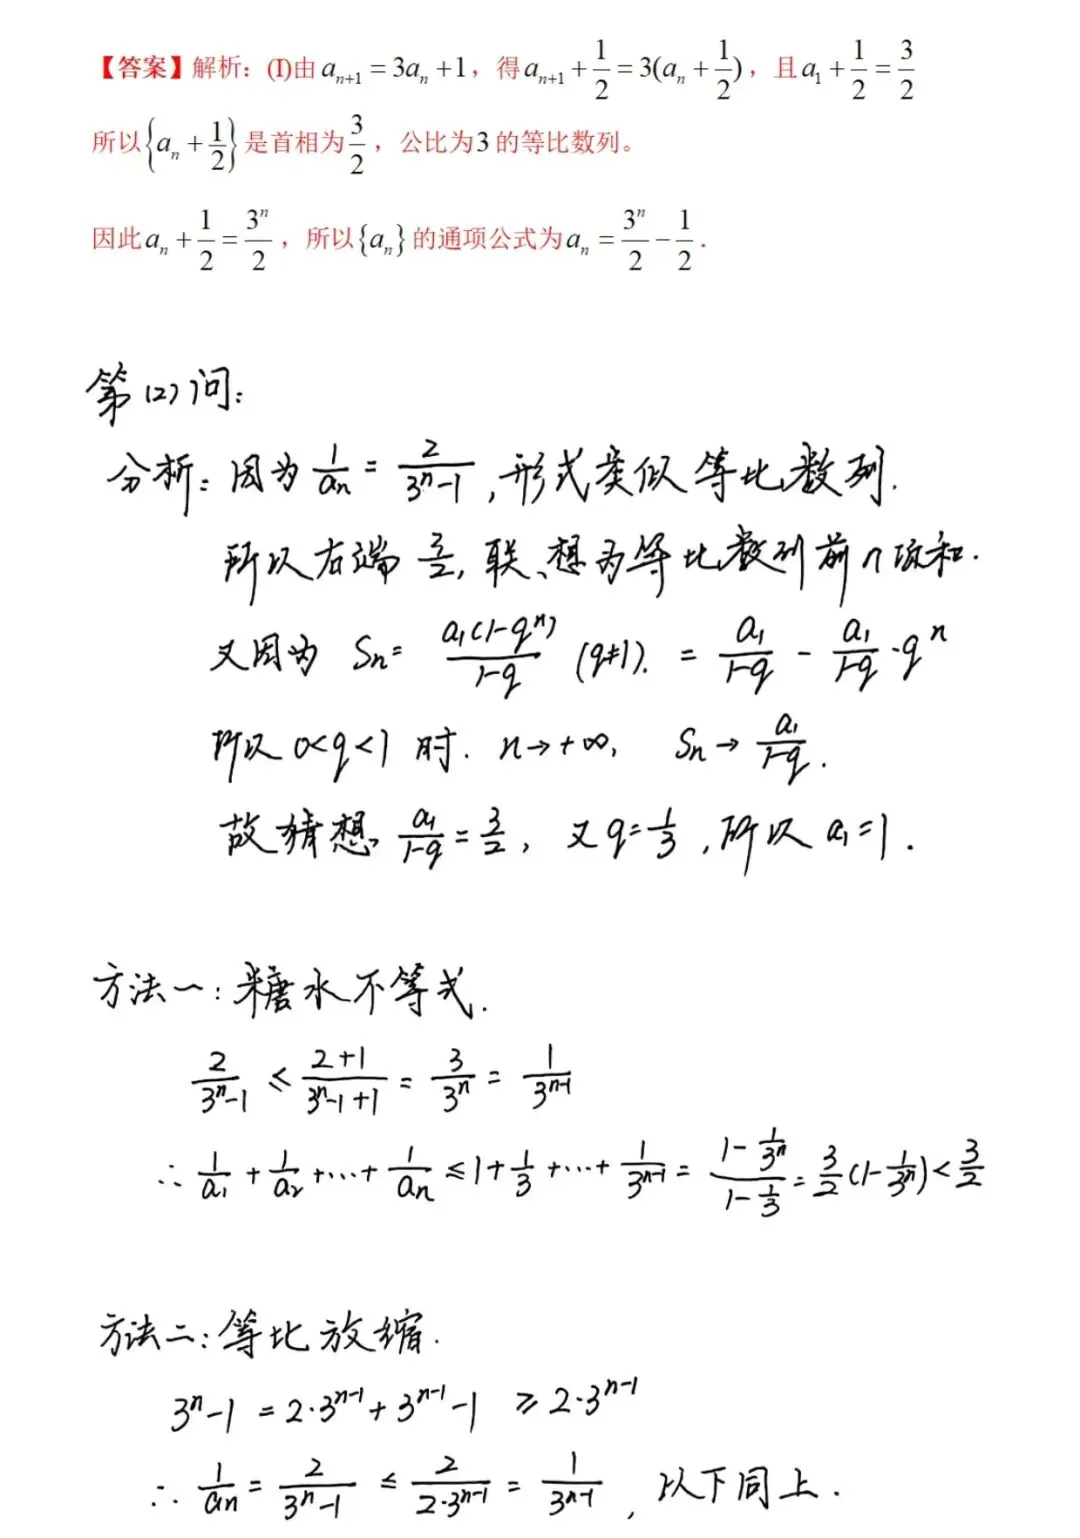 【答案】解析：(I)由 a_{n+1} = 3a_n + 1，得 a_{n+1} + 1/2 = 3(a_n + 1/2)，且 a_1 + 1/2 = 3/2
所以{a_n + 1/2}是首相为 3/2，公比为3的等比数列。
因此 a_n + 1/2 = 3^n/2，所以{a_n}的通项公式为 a_n = 3^n/2 - 1/2.
第(2)问:
分析: 因为 1/a_n = 2/(3^n-1), 形式类似等比数列.
所以右端 3/2, 联想为等比数列前n项和.
又因为 S_n = a_1(1-q^n)/(1-q) (q≠1). = a_1/(1-q) - a_1/(1-q)·q^n
所以 0<q<1 时. n→+∞, S_n → a_1/(1-q).
故猜想 a_1/(1-q) = 3/2, 又 q=1/3, 所以 a_1=1.
方法一: 糖水不等式.
2/(3^n-1) ≤ (2+1)/(3^n-1+1) = 3/3^n = 1/3^{n-1}
∴ 1/a_1 + 1/a_2 + ... + 1/a_n ≤ 1 + 1/3 + ... + 1/3^{n-1} = (1 - 1/3^n)/(1 - 1/3) = 3/2(1 - 1/3^n) < 3/2
方法二: 等比放缩.
3^n-1 = 2·3^{n-1} + 3^{n-1} - 1 ≥ 2·3^{n-1}
∴ 1/a_n = 2/(3^n-1) ≤ 2/(2·3^{n-1}) = 1/3^{n-1}, 以下同上.